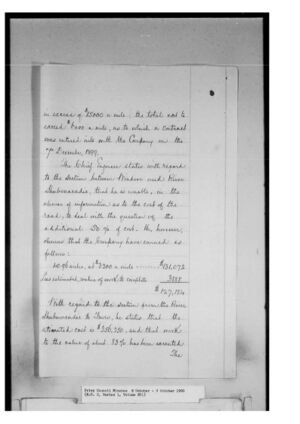 in excess of $15000 a mile; the total not to
exceed $ a mile, as to which a contract
was entered into with the Company on the
7th December, 1899.
The Chief Engineer states with regard
to the section between Windsor and River
Shubenacadie, that he is unable, in the
absence of information as to the cost of the
road, to deal with the question of the
additional 50% of cost. He, however,
shows that the Company have earned as
follows:
miles, at $3200 a mile $131,072
Less estimated value of work to complete 3888
$127,184
With regard to the section from the River
Shubenacadie to Truro, he states that the
estimated cost is $356,350, and that work
to the value of about 33% has been executed
The
Privy Council Minutes October - October 1900
(R.G. 2, Series 1, Volume